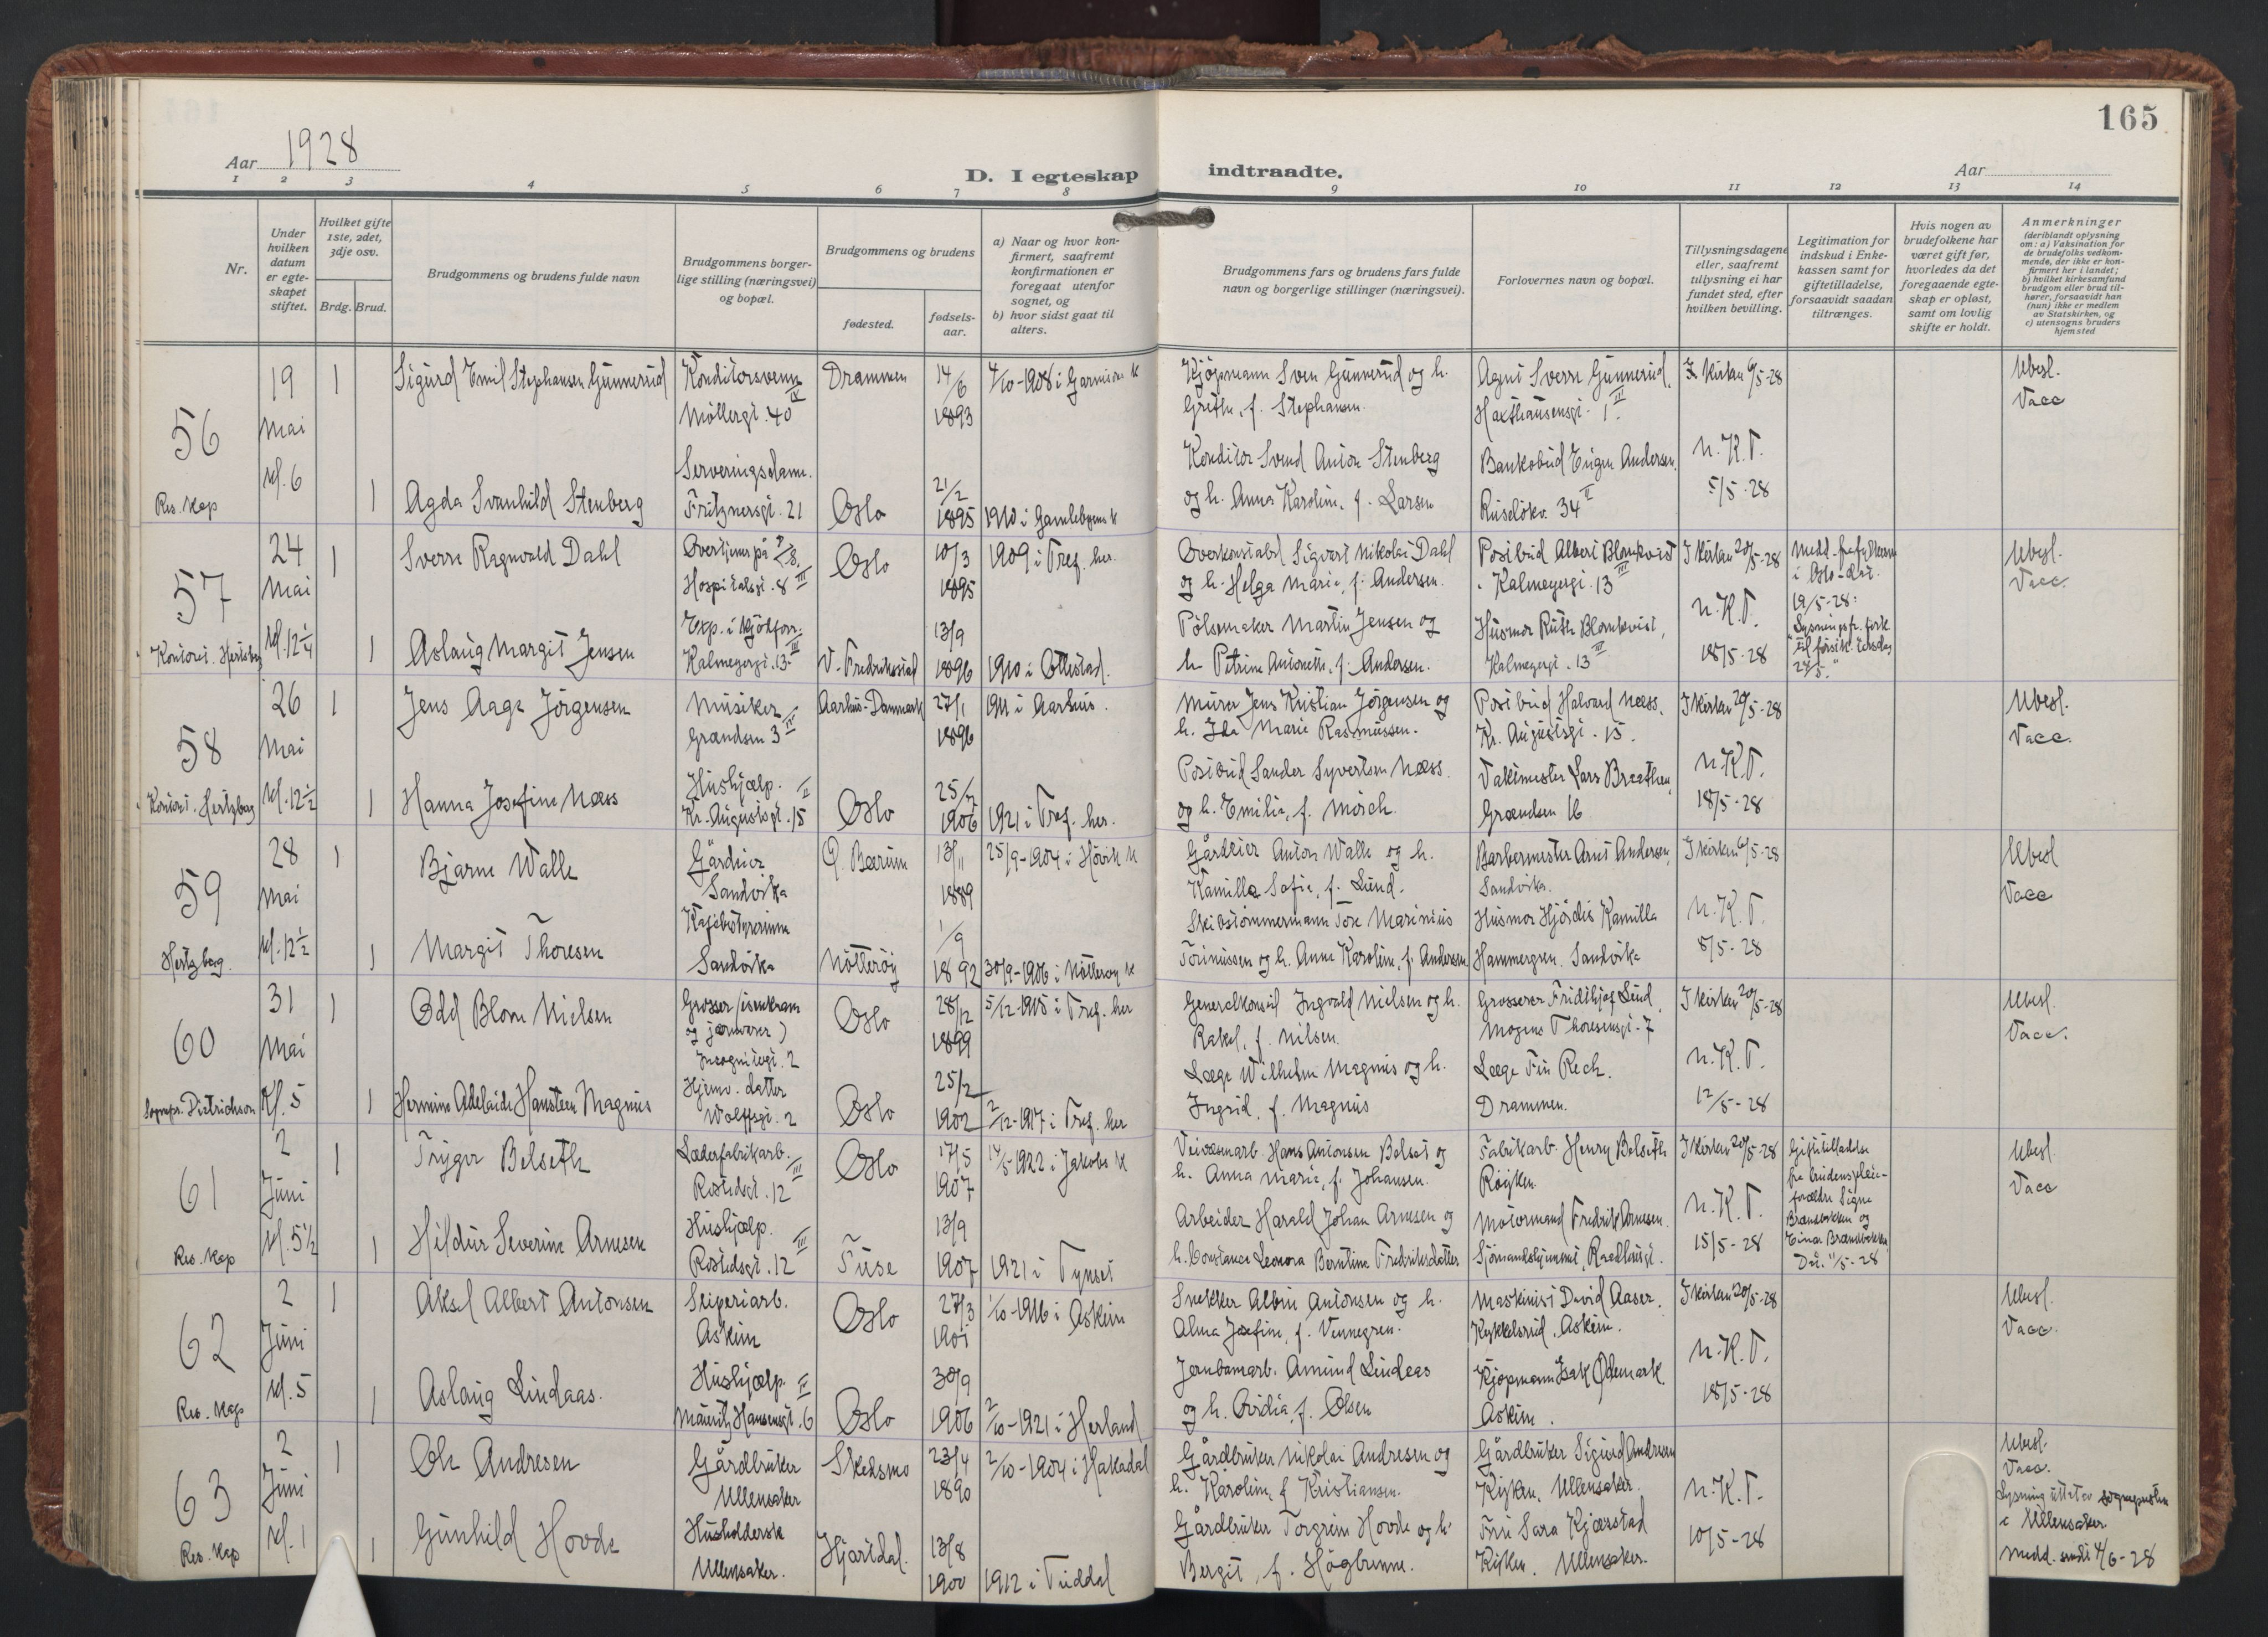 165
Aar 1928
D. I egteskap indtraadte.
Aar
1 2 3 4 5 6 7 8 9 10 11 12 13 14
Nr.
Under hvilken datum er egteskapet stiftet.
Hvilket gifte 1ste, 2det, 3dje osv.
Brdg. Brud.
Brudgommens og brudens fulde navn
Brudgommens borgerlige stilling (næringsvei) og bopæl.
Brudgommens og brudens
fødested.
fødselsaar.
a) Naar og hvor konfirmert, saafremt konfirmationen er foregaat utenfor sognet, og
b) hvor sidst gaat til alters.
Brudgommens fars og brudens fars fulde navn og borgerlige stillinger (næringsvei).
Forlovernes navn og bopæl.
Tillysningsdagene eller, saafremt tillysning ei har fundet sted, efter hvilken bevilling.
Legitimation for indskud i Enkekassen samt for giftetilladelse, forsaavidt saadan tiltrænges.
Hvis nogen av brudefolkene har været gift før, hvorledes da det foregaaende egteskap er opløst, samt om lovlig skifte er holdt.
Anmerkninger
(deriblandt oplysning om: a) Vaksination for de brudefolks vedkommende, der ikke er konfirmert her i landet; b) hvilket kirkesamfund brudgom eller brud tilhører, forsaavidt han (hun) ikke er medlem av Statskirken, og c) utensogns bruders hjemsted
56
19 Mai kl. 6
Res. Kap
1
Sigurd Emil Stephansen Gunnerud
Konditorsvenn
Möllergt. 40 IV
Drammen
14/6 1893
4/10-1908 i Garnisons k
Kjöpmann Sven Gunnerud og h.
Grethe, f. Stephansen.
Agent Sverre Gunnerud,
Haxthausensgt. 1 III
I Kirken 6/5-28
Ubesl.
Vacc
1
Agda Svanhild Stenberg
Serveringsdame.
Fritznersgt. 21
Oslo
21/2 1895
1910 i Gamlebyens k
Konditor Svend Anton Stenberg
og h. Anna Karoline, f. Larsen
Bankobud Eugen Andersen,
Ruselökv. 34 II
n. K. T.
5/5-28
57
24 Mai kl. 12 1/4
Kontorst. Hertzberg
1
Sverre Ragnvald Dahl
Overtjener på
Hospitalsgt. 8 III
Oslo
10/3 1895
1909 i Tref. her.
Overkonstabel Sigvart Nikolai Dahl
og h. Helga Marie, f. Andersen.
Postbud Albert Blomkvist
Kalmeyergt. 13 III
I Kirken 20/5-28
Ubesl.
Vacc.
1
Aslaug Margit Jensen
Exp. i kjötforr.
Kalmeyergt. 13 III
V-Fredrikstad
13/9 1896
1910 i Ottestad.
Pölsemaker Martin Jensen og
h. Petrine Antonette, f. Andersen.
Husmor Ruth Blomkvist,
Kalmeyergt. 13 III
n. K. T.
18/5-28
58
26 Mai kl. 12 1/2
Kontorst. Hertzberg
1
Jens Aage Jörgensen
Musiker
Grændsen 3 IV
Aarhus-Danmark
27/1 1896
1911 i Aarhus.
Murer Jens Kristian Jörgensen og
h. Ida Marie Rasmussen.
Postbud Halvard Næss,
Kr. Augustsgt. 15.
I Kirken 20/5-28
Ubesl.
Vacc.
1
Hanna Josefine Næss
Hushjælp.
Kr. Augustsgt. 15 II
Oslo
1906
1921 i Tref. her.
Postbud Sander Syvertsen Næss
og h. Emilie, f. Mörch.
Vaktmester Lars Braathen,
Grændsen 16
n. K. T.
18/5-28
59
28 Mai kl. 12 1/2
Hertzberg.
1
Bjarne Walle
Gårdeier
Sandvika
Ö. Bærum
13/11 1889
25/9-1904 i Hövik k
Gårdeier Anton Walle og h.
Kamilla Sofie, f. Lund.
Barbermester Arnt Andersen,
Sandvika.
I kirken 6/5-28
Ubesl
Vacc
1
Margit Thoresen
Kafébestyrerinne
Sandvika
Nötteröy
1/9 1892
30/9-1906 i Nötteröy k
Skibstömmermann Tore Marinius
Torinussen og h. Anne Karoline, f. Andersen
Husmor Hjördis Kamilla
Hammergren. Sandvika
n. K. T.
8/5-28
60
31 Mai Kl. 5
Sogneprs. Dietrichson
1
Odd Blom Nielsen
Grosser (isenkram
og jernvarer)
Incognitogt. 2
Oslo
28/12 1899
5/12-1915 i Tref. her
Generalkonsul Ingvald Nielsen og h.
Rakel, f. Nilsen.
Grosserer Fridthjof Lund,
Mogens Thoresensgt. 7
I kirken 20/5-28
Ubesl.
Vacc.
1
Hermine Adelaide Hansteen Magnus
Hjemv. datter
Wolffsgt. 2
Oslo
25/2 1902
2/12-1917 i Tref. her
Læge Wilhelm Magnus og h.
Ingrid, f. Magnus
Læge Finn Rech.
Drammen.
n. K. T.
12/5-28
61
2 Juni kl. 5 1/2
Res. Kap
1
Trygve Belseth
Læderfabrikarb.
Rostedsgt. 12 III
Oslo
17/5 1907
14/5-1922 i Jakobs k
Veivæsenarb. Hans Antonsen Belset og
h. Anna Marie, f. Johansen.
Fabrikarb. Henry Belseth
Röyken.
I kirken 20/5-28
Giftetilladelse
fra brudens pleieforældre Signe
Brænebakken og
Einar Brænebakken,
Dat. 11/5-28
Ubesl.
Vacc
1
Hildur Severine Arnesen
Hushjælp.
Rostedsgt. 12 III
Fuse
13/9 1907
1921 i Tynset
Arbeider Harald Johan Arnesen og
h. Constance Leonora Berntine Fredriksdatter
Motormand Fredrik Arnesen.
Sjömandshjemmet, Raadhusgt.
n. K. T.
15/5-28
62
2 Juni kl. 5
Res. Kap
1
Aksel Albert Antonsen
Askim
Oslo
27/3 1901
1/10-1916 i Askim
Snekker Albin Antonsen og h.
Alma Josefine, f. Vennegren.
Maskinist David Aaser.
Kykkelsrud, Askim.
I kirken 20/5-28
Ubesl.
Vacc.
1
Aslaug Lindaas.
Hushjælp.
Mauritz Hansensgt. 6 IV
Oslo
30/9 1906
2/10-1921 i Herland
Jernbanearb. Amund Lindaas
og h. Ovidia, f. Olsen
Kjöpmann Isak Ödemark.
Askim.
n. K. T.
18/5-28
63
2 Juni kl. 1
Res. Kap
1
Ole Andresen
Gårdbruker
Ullensaker
Skedsmo
23/4 1890
2/10-1904 i Hakadal
Gårdbruker Nikolai Andresen og
h. Karoline, f. Kristiansen.
Gårdbruker Sigurd Andresen
Ullensaker.
n. K. T.
10/5-28
Ubesl.
Vacc.
Lysning uttatt av sogneprsten
i Ullensaker.
Medd. sendt 4/6-28
1
Gunhild Hovde
Husholderske
Ullensaker.
Hjartdal.
13/8 1900
1912 i Tuddal
Gårdbruker Torgrim Hovde og h.
Bergit, f. Högbrenne.
Fru Sara Kjærstad
Ullensaker.